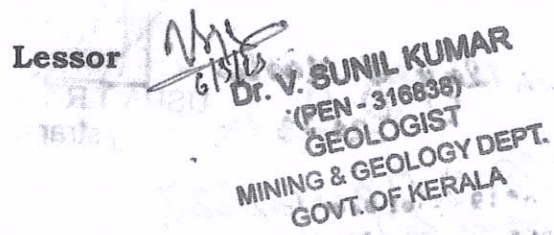 Lessor
6/5/23
Dr. V. SUNIL KUMAR
(PEN - 316836)
GEOLOGIST
MINING & GEOLOGY DEPT.
GOVT. OF KERALA